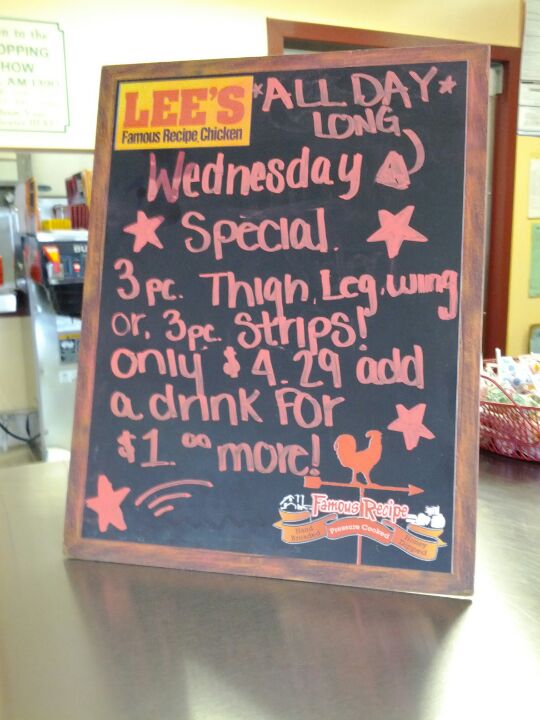 n to the
OPPING
HOW
AM 1390
LEE'S
Famous Recipe Chicken
*ALL DAY*
LONG
Wednesday
Special.
3 pc. Thigh, Leg, wing
or, 3 pc. Strips!
only $4.29 add
a drink For
$1.00 more!
Famous Recipe
Hand Breaded
Pressure Cooked
Honey Dipped